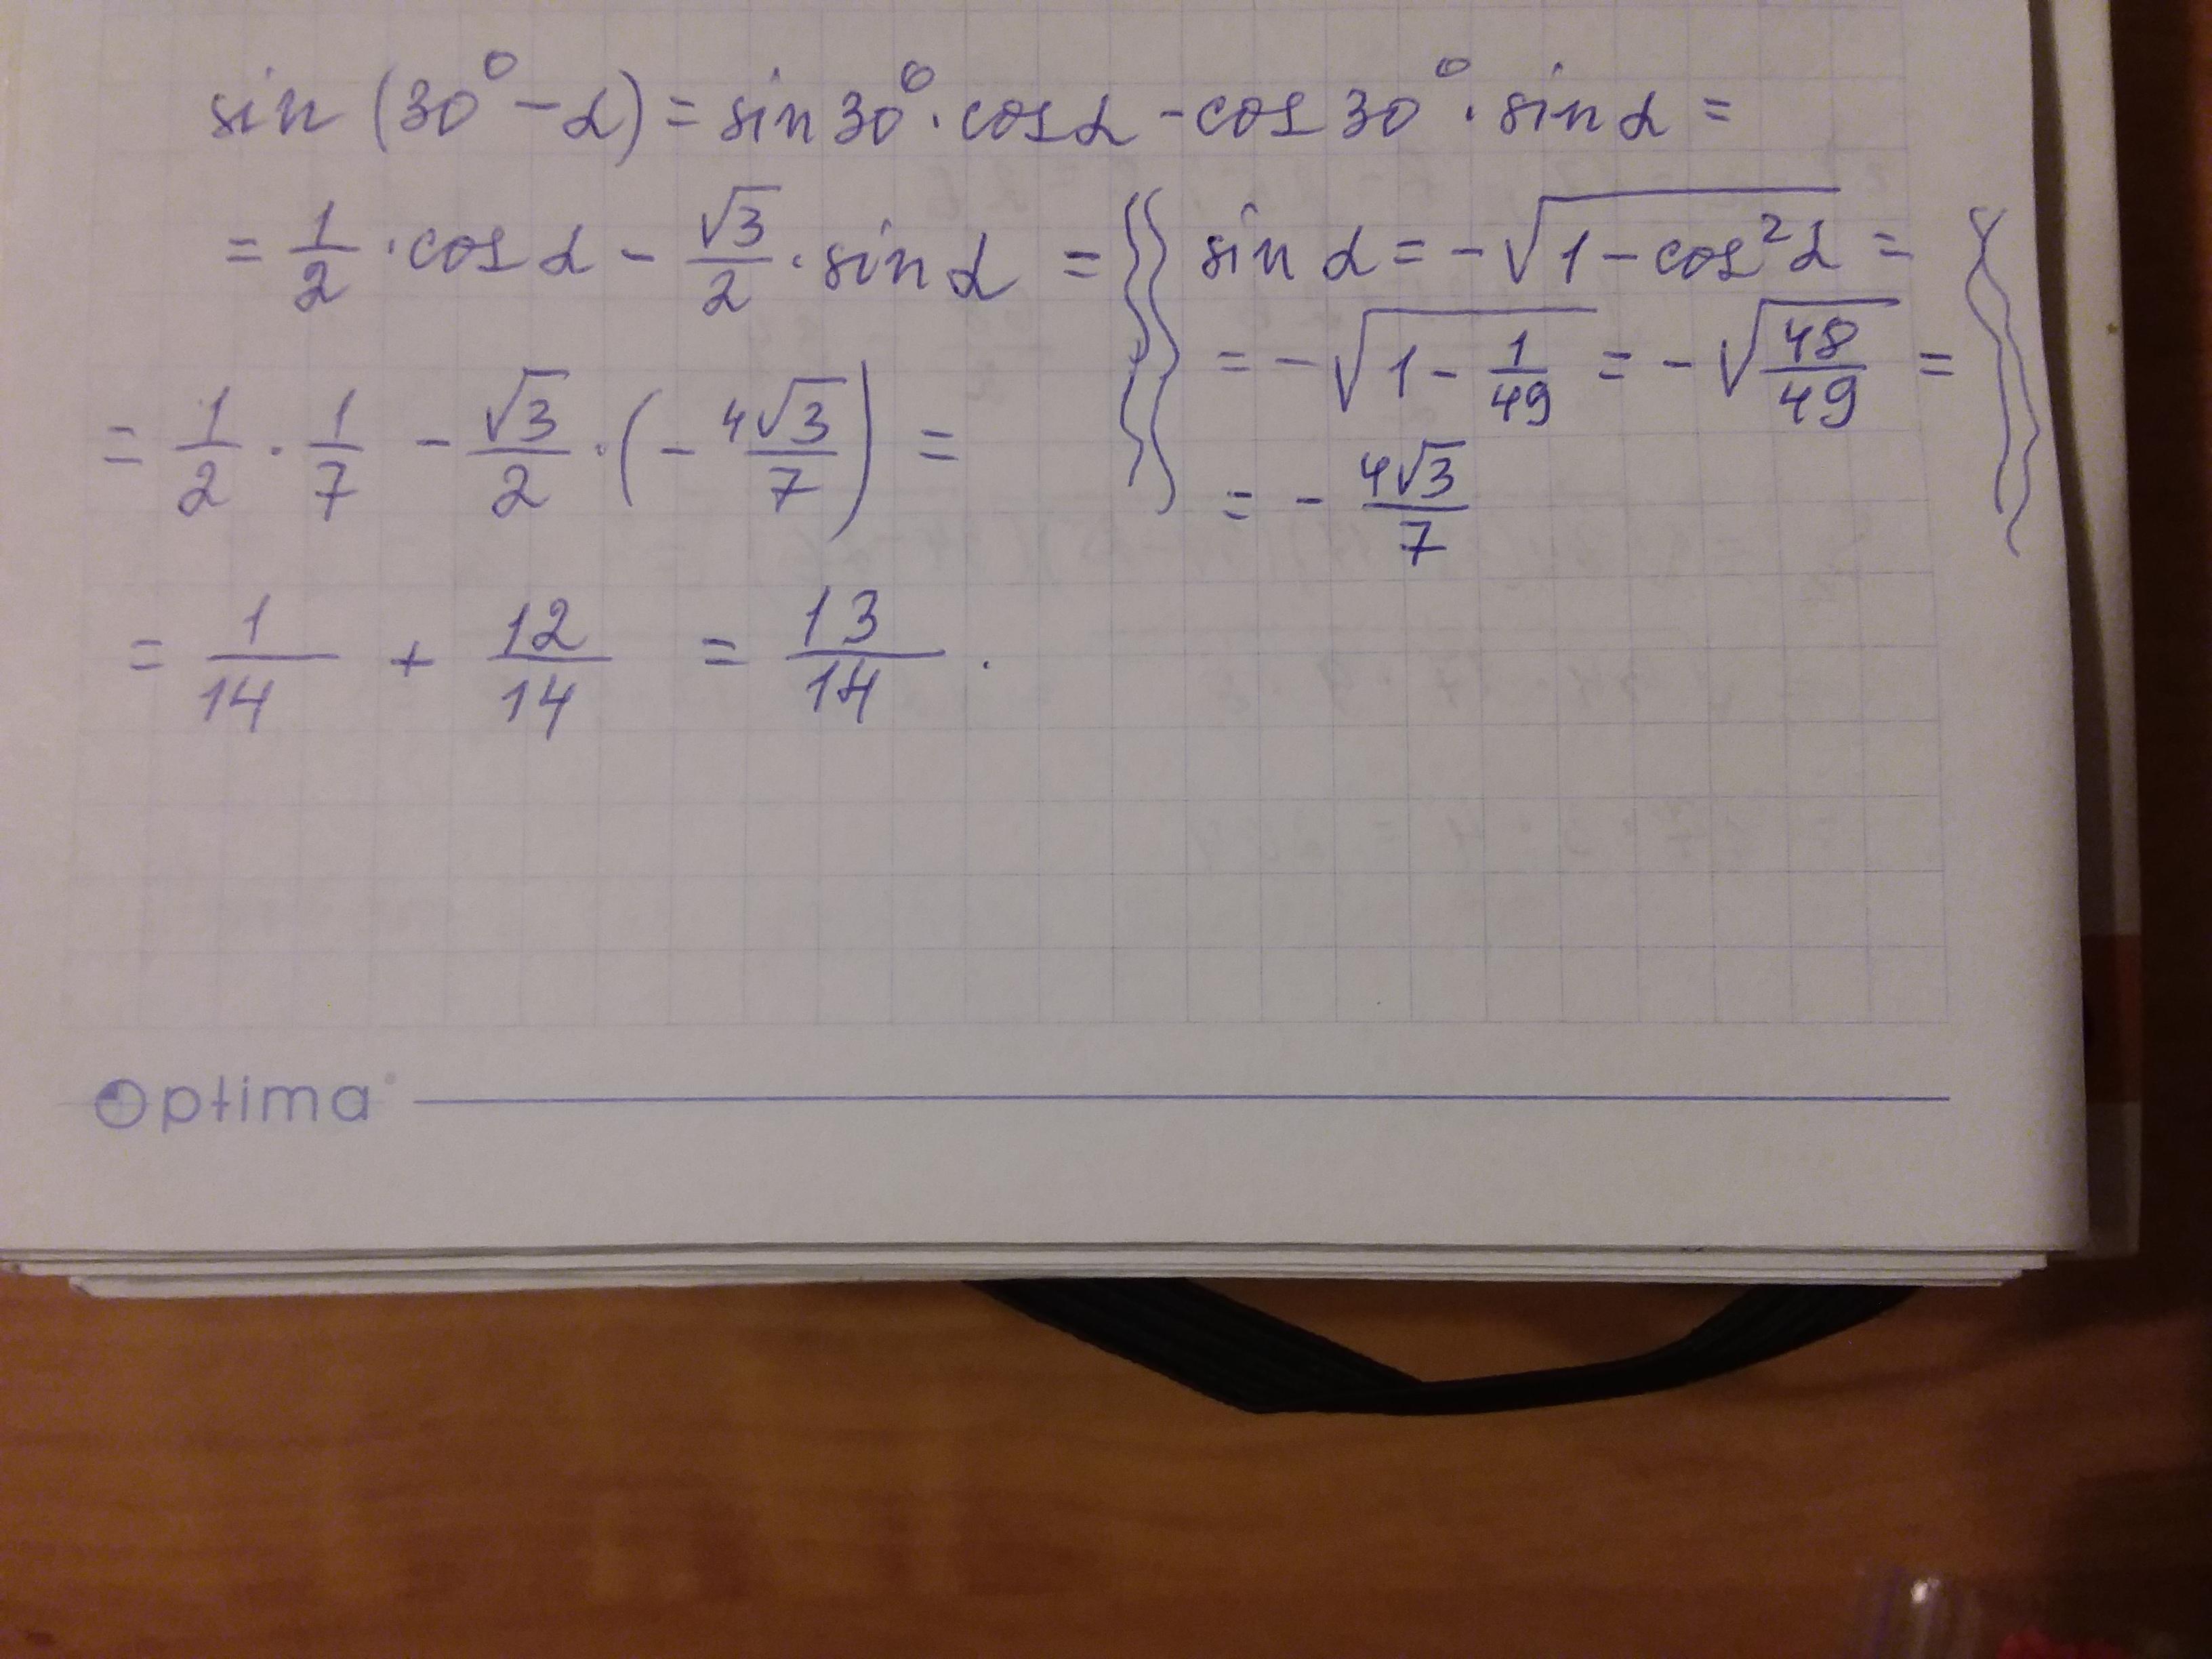 sin (30° - α) = sin 30° · cos α - cos 30° · sin α =
= 1/2 · cos α - √3/2 · sin α = {{ sin α = -√(1 - cos²α) =
= -√(1 - 1/49) = -√(48/49) =
= - 4√3/7 }}
= 1/2 · 1/7 - √3/2 · (- 4√3/7) =
= 1/14 + 12/14 = 13/14 .
Optima